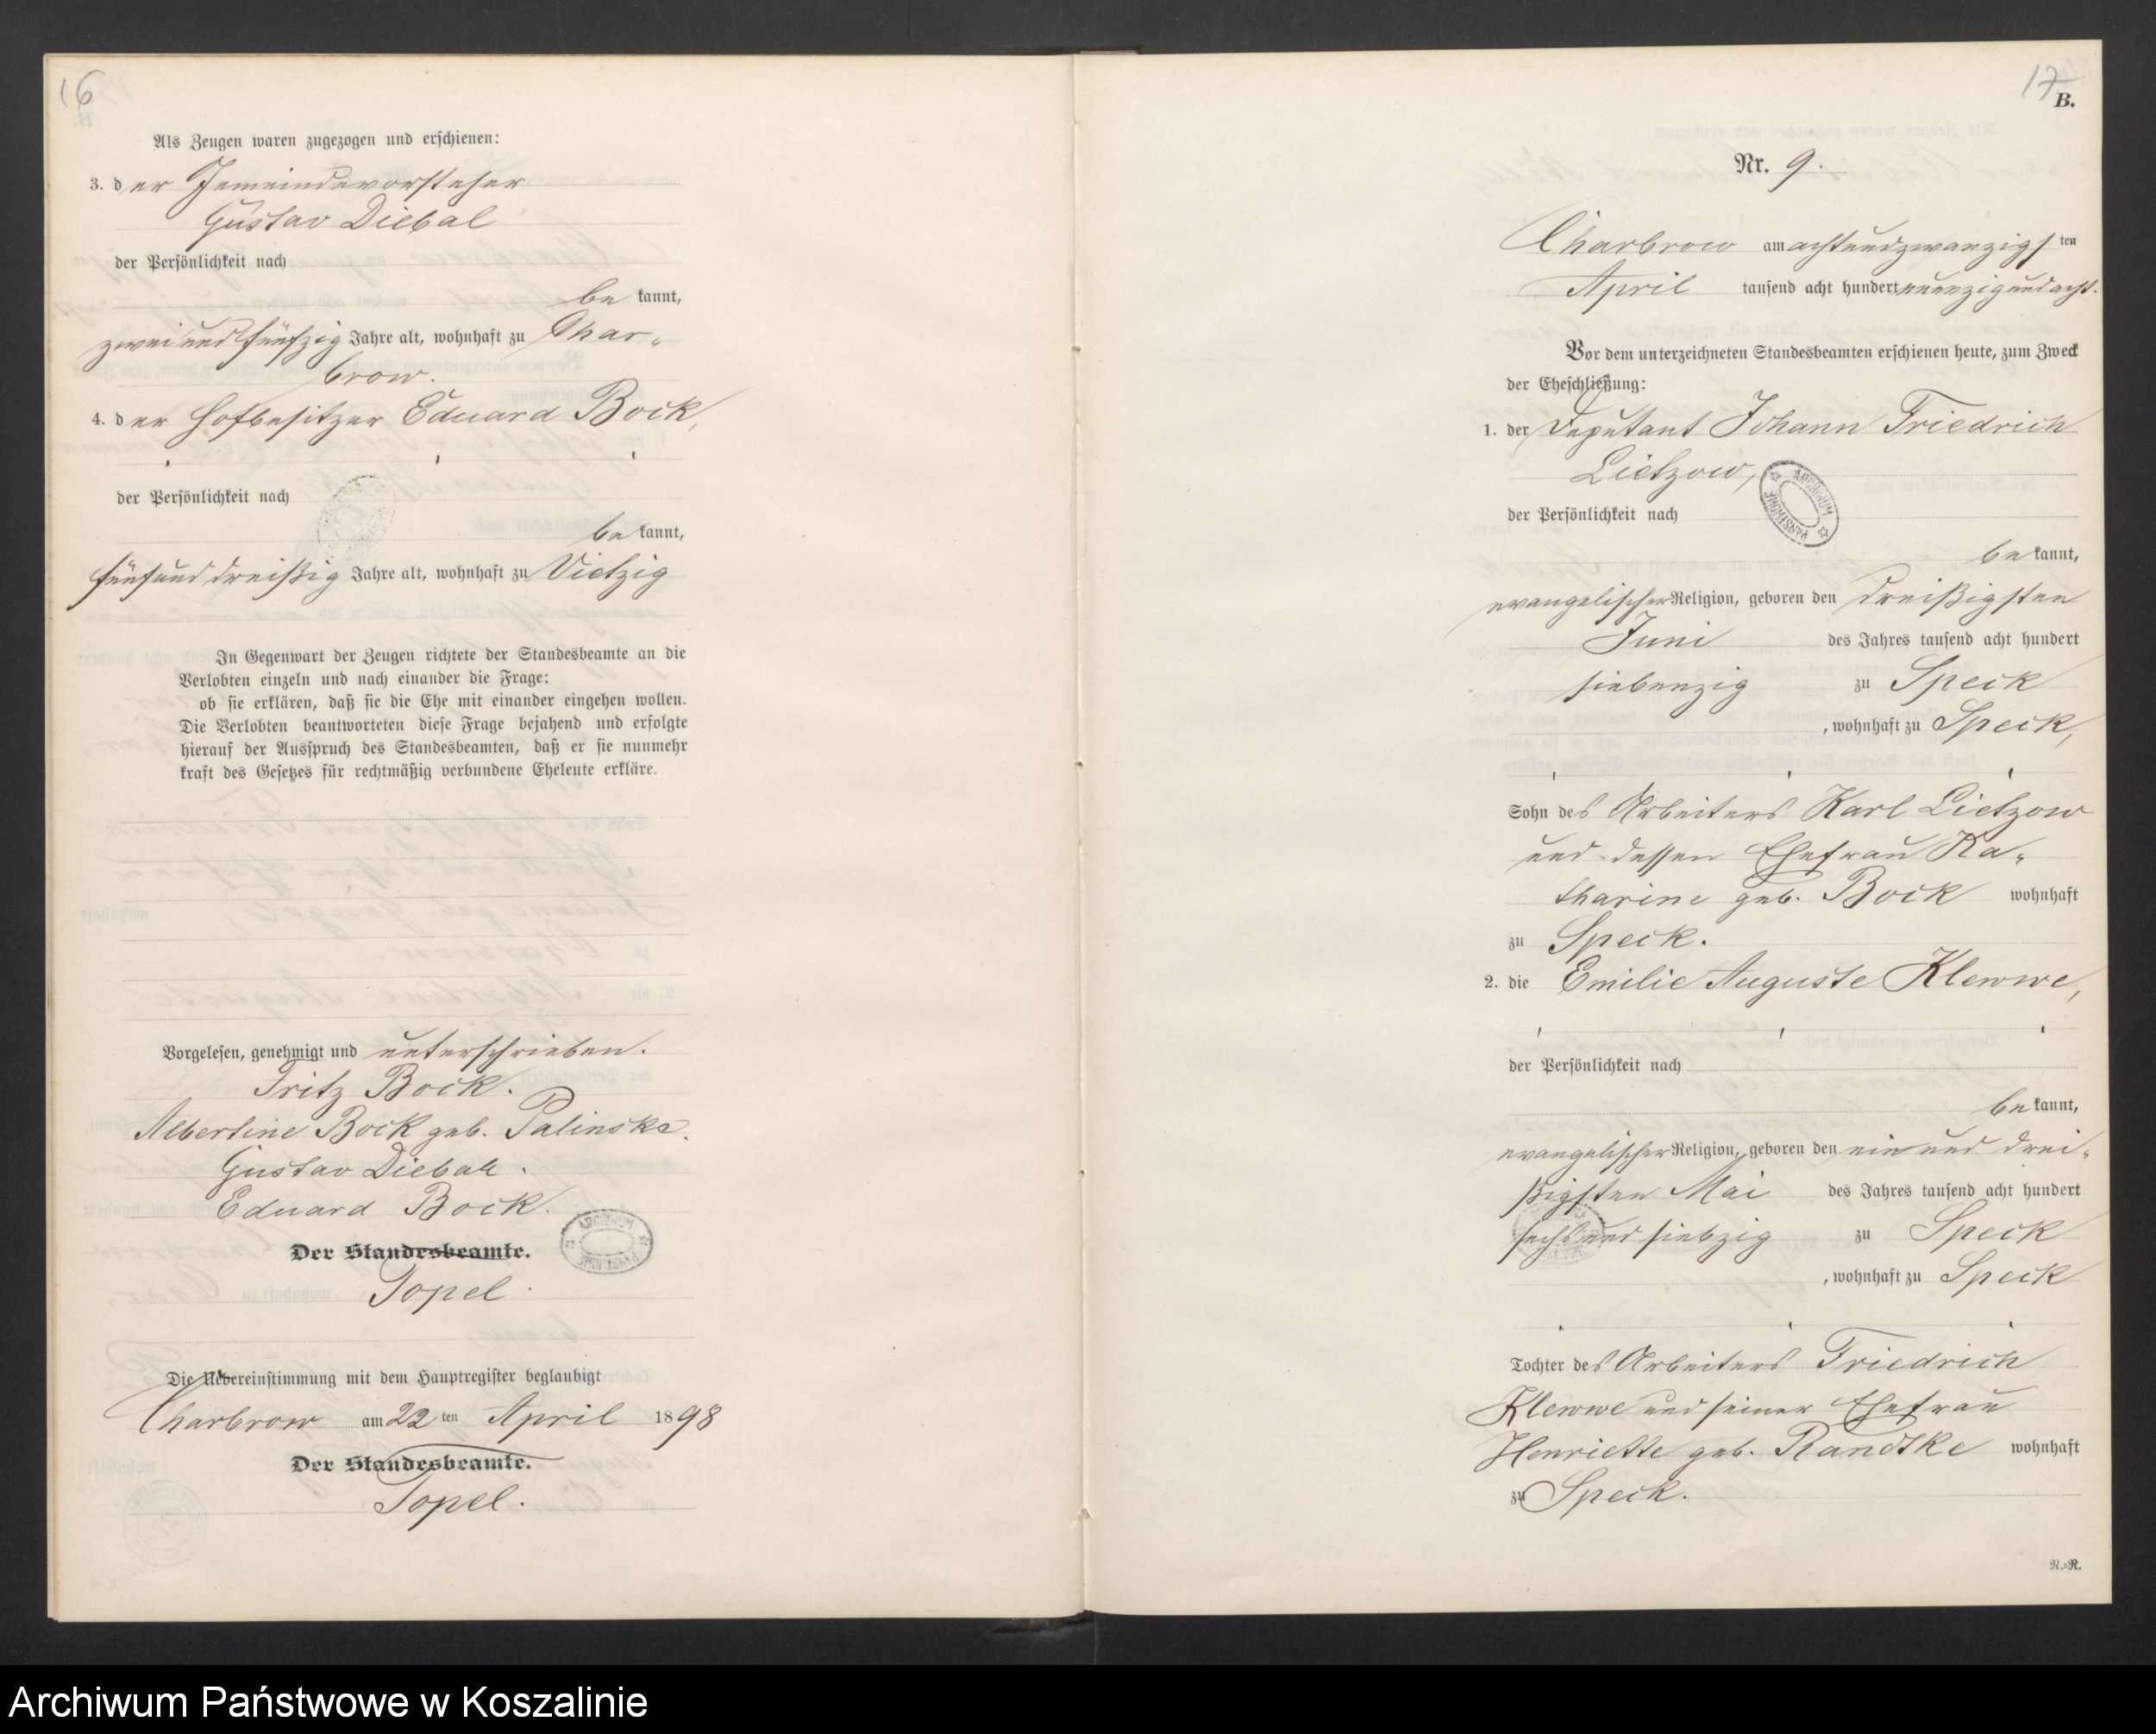 16
Als Zeugen waren zugezogen und erschienen:
3. der Gemeindevorsteher
Gustav Diebal
der Persönlichkeit nach
be kannt,
zweiundfünfzig Jahre alt, wohnhaft zu Char-
brow.
4. der Hofbesitzer Eduard Bock,
der Persönlichkeit nach
be kannt,
fünfunddreißig Jahre alt, wohnhaft zu Vietzig
In Gegenwart der Zeugen richtete der Standesbeamte an die
Verlobten einzeln und nach einander die Frage:
ob sie erklären, daß sie die Ehe mit einander eingehen wollen.
Die Verlobten beantworteten diese Frage bejahend und erfolgte
hierauf der Ausspruch des Standesbeamten, daß er sie nunmehr
kraft des Gesetzes für rechtmäßig verbundene Eheleute erkläre.
Vorgelesen, genehmigt und unterschrieben.
Fritz Bock.
Albertine Bock geb. Palinske.
Gustav Diebal.
Eduard Bock.
ARCHIWUM PAŃSTWOWE
Der Standesbeamte.
Topel.
Die Uebereinstimmung mit dem Hauptregister beglaubigt
Charbrow am 22 ten April 1898
Der Standesbeamte.
Topel.
17
B.
Nr. 9.
Charbrow am achtundzwanzigsten
April tausend acht hundert neunzigundacht.
Vor dem unterzeichneten Standesbeamten erschienen heute, zum Zweck
der Eheschließung:
1. der Deputant Johann Friedrich
Lietzow,
ARCHIWUM PAŃSTWOWE
der Persönlichkeit nach
be kannt,
evangelischer Religion, geboren den dreißigsten
Juni des Jahres tausend acht hundert
siebenzig zu Speck
, wohnhaft zu Speck,
Sohn des Arbeiters Karl Lietzow
und dessen Ehefrau Ka-
tharine geb. Bock wohnhaft
zu Speck.
2. die Emilie Auguste Klewwe,
der Persönlichkeit nach
be kannt,
evangelischer Religion, geboren den einunddrei-
ßigsten Mai des Jahres tausend acht hundert
sechsundsiebzig zu Speck
, wohnhaft zu Speck
Tochter des Arbeiters Friedrich
Klewwe und seiner Ehefrau
Henriette geb. Randtke wohnhaft
zu Speck.
R.=R.
Archiwum Państwowe w Koszalinie